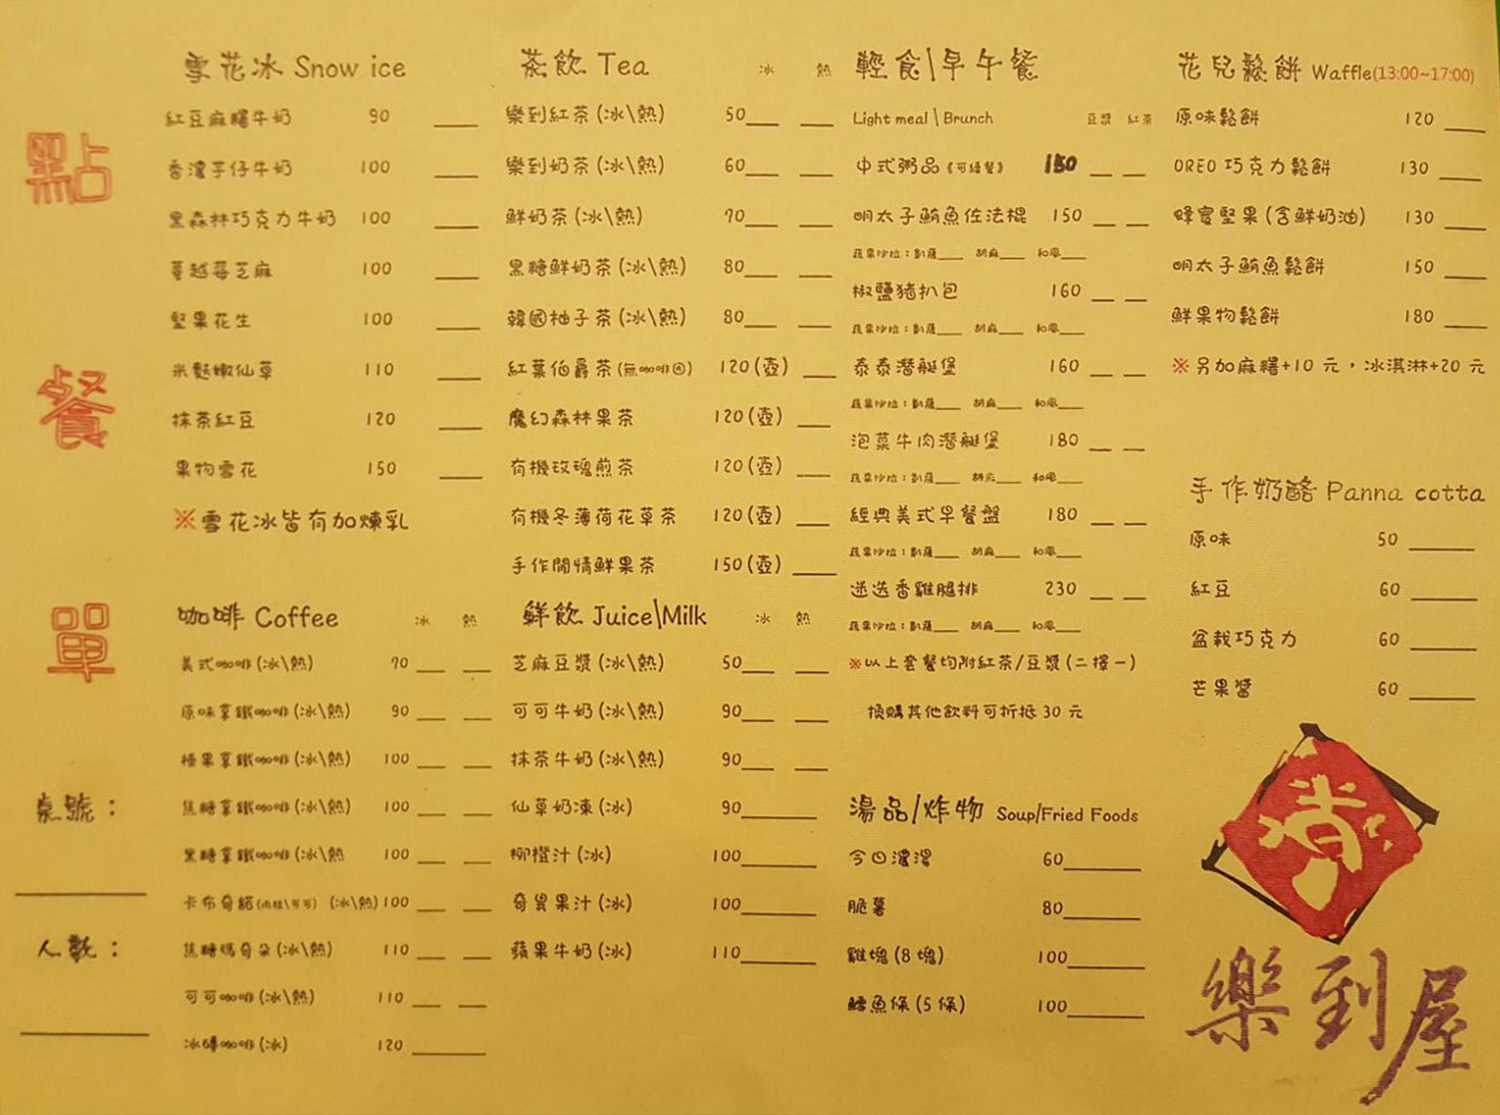 點
餐
單
桌號：
人數：
雪花冰 Snow ice
紅豆麻糬牛奶 90
香濃芋仔牛奶 100
黑森林巧克力牛奶 100
蔓越莓芝麻 100
堅果花生 100
米麩嫩仙草 110
抹茶紅豆 120
果物雪花 150
※雪花冰皆有加煉乳
咖啡 Coffee 冰 熱
美式咖啡(冰\熱) 70
原味拿鐵咖啡(冰\熱) 90
榛果拿鐵咖啡(冰\熱) 100
焦糖拿鐵咖啡(冰\熱) 100
黑糖拿鐵咖啡(冰\熱 100
卡布奇諾(肉桂\可可) (冰\熱) 100
焦糖瑪奇朵(冰\熱) 110
可可咖啡(冰\熱) 110
冰磚咖啡(冰) 120
茶飲 Tea 冰 熱
樂到紅茶(冰\熱) 50
樂到奶茶(冰\熱) 60
鮮奶茶(冰\熱) 70
黑糖鮮奶茶(冰\熱) 80
韓國柚子茶(冰\熱) 80
紅葉伯爵茶(無咖啡因) 120(壺)
魔幻森林果茶 120(壺)
有機玫瑰煎茶 120(壺)
有機冬薄荷花草茶 120(壺)
手作閒情鮮果茶 150(壺)
鮮飲 Juice\Milk 冰 熱
芝麻豆漿(冰\熱) 50
可可牛奶(冰\熱) 90
抹茶牛奶(冰\熱) 90
仙草奶凍(冰) 90
柳橙汁(冰) 100
奇異果汁(冰) 100
蘋果牛奶(冰) 110
輕食\早午餐
Light meal \ Brunch 豆漿 紅茶
中式粥品《可續餐》 150
明太子鮪魚佐法棍 150
蔬果沙拉：凱薩 胡麻 和風
椒鹽豬扒包 160
蔬果沙拉：凱薩 胡麻 和風
泰泰潛艇堡 160
蔬果沙拉：凱薩 胡麻 和風
泡菜牛肉潛艇堡 180
蔬果沙拉：凱薩 胡麻 和風
經典美式早餐盤 180
蔬果沙拉：凱薩 胡麻 和風
迷迭香雞腿排 230
蔬果沙拉：凱薩 胡麻 和風
※以上套餐均附紅茶/豆漿(二擇一)
換購其他飲料可折抵 30 元
湯品/炸物 Soup/Fried Foods
今日濃湯 60
脆薯 80
雞塊(8 塊) 100
鱈魚條(5 條) 100
花兒鬆餅 Waffle(13:00~17:00)
原味鬆餅 120
OREO 巧克力鬆餅 130
蜂蜜堅果(含鮮奶油) 130
明太子鮪魚鬆餅 150
鮮果物鬆餅 180
※另加麻糬+10 元，冰淇淋+20 元
手作奶酪 Panna cotta
原味 50
紅豆 60
盆栽巧克力 60
芒果醬 60
樂到屋